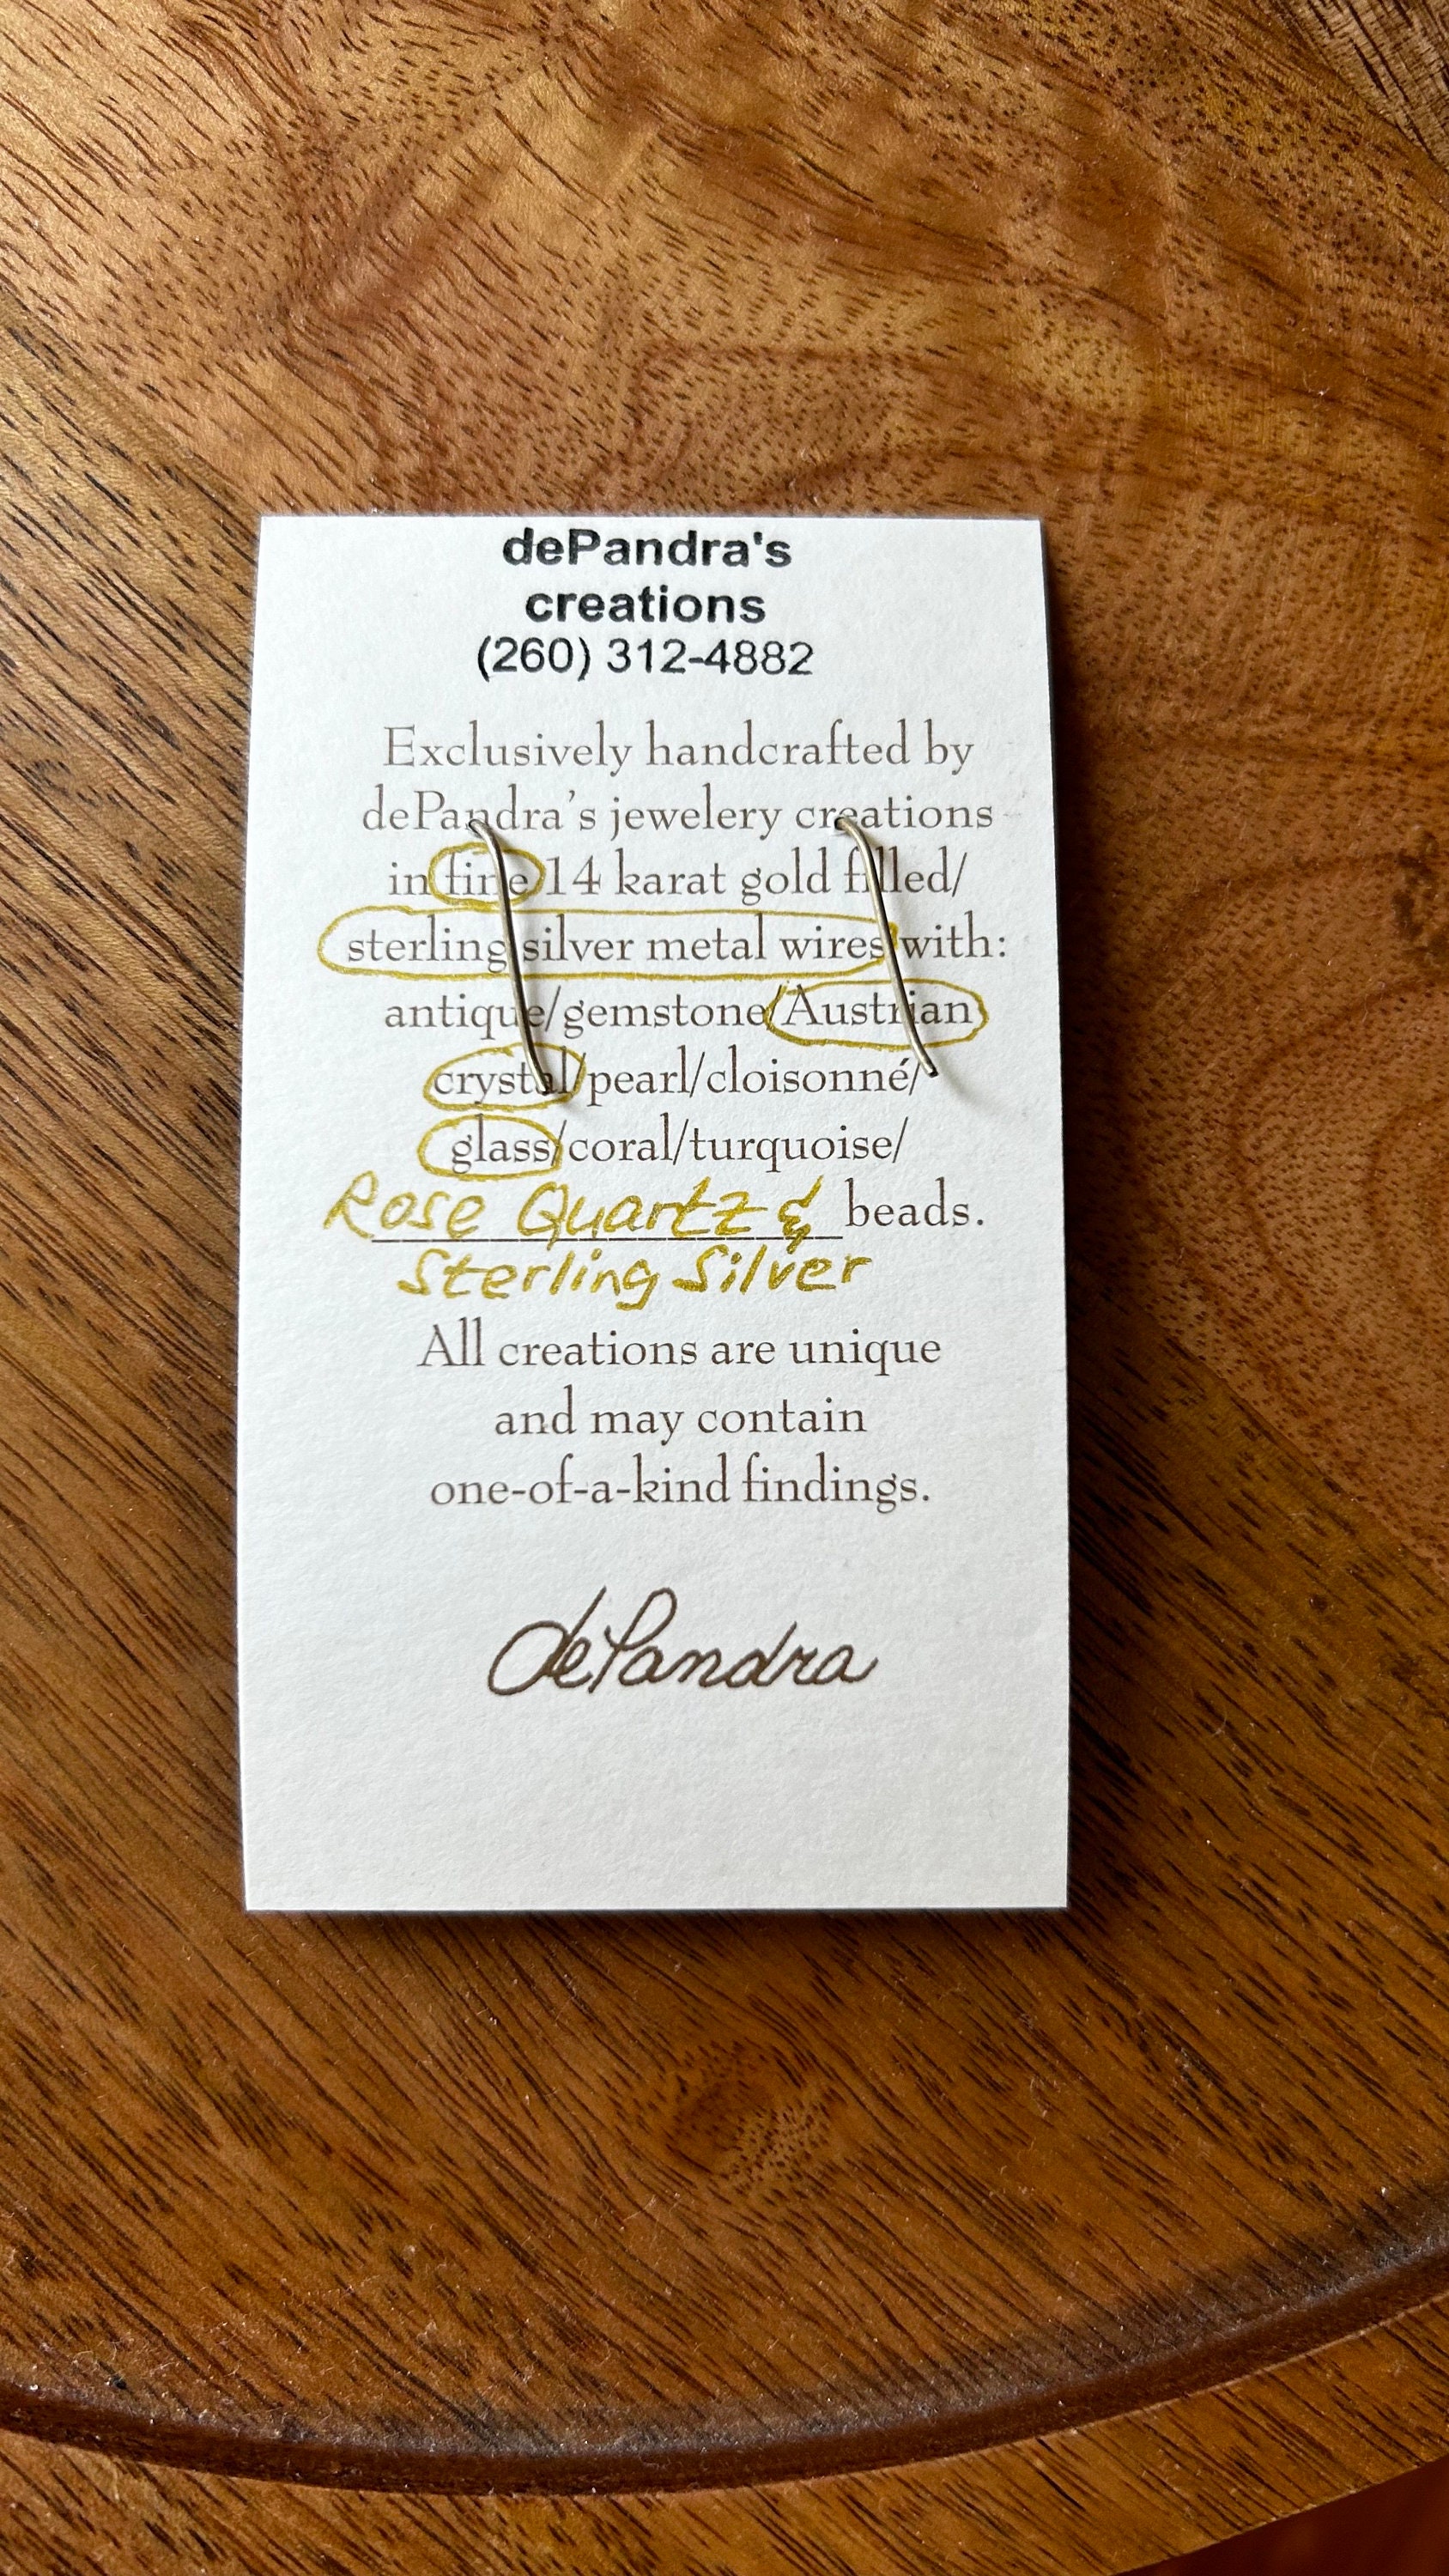 dePandra's
creations
(260) 312-4882
Exclusively handcrafted by
dePandra's jewelery creations
in fine 14 karat gold filled/
sterling silver metal wires with:
antique/gemstone/Austrian
crystal/pearl/cloisonné/
glass/coral/turquoise/
Rose Quartz & beads.
Sterling Silver
All creations are unique
and may contain
one-of-a-kind findings.
dePandra